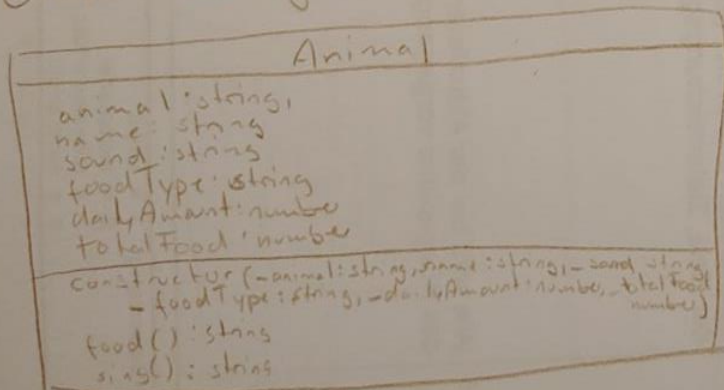 Animal
animal: string,
name: string
sound: string
foodType: string
dailyAmount: number
totalFood: number
constructor(_animal: string, _name: string, _sound: string,
_foodType: string, _dailyAmount: number, _totalFood:
number)
food(): string
sing(): string